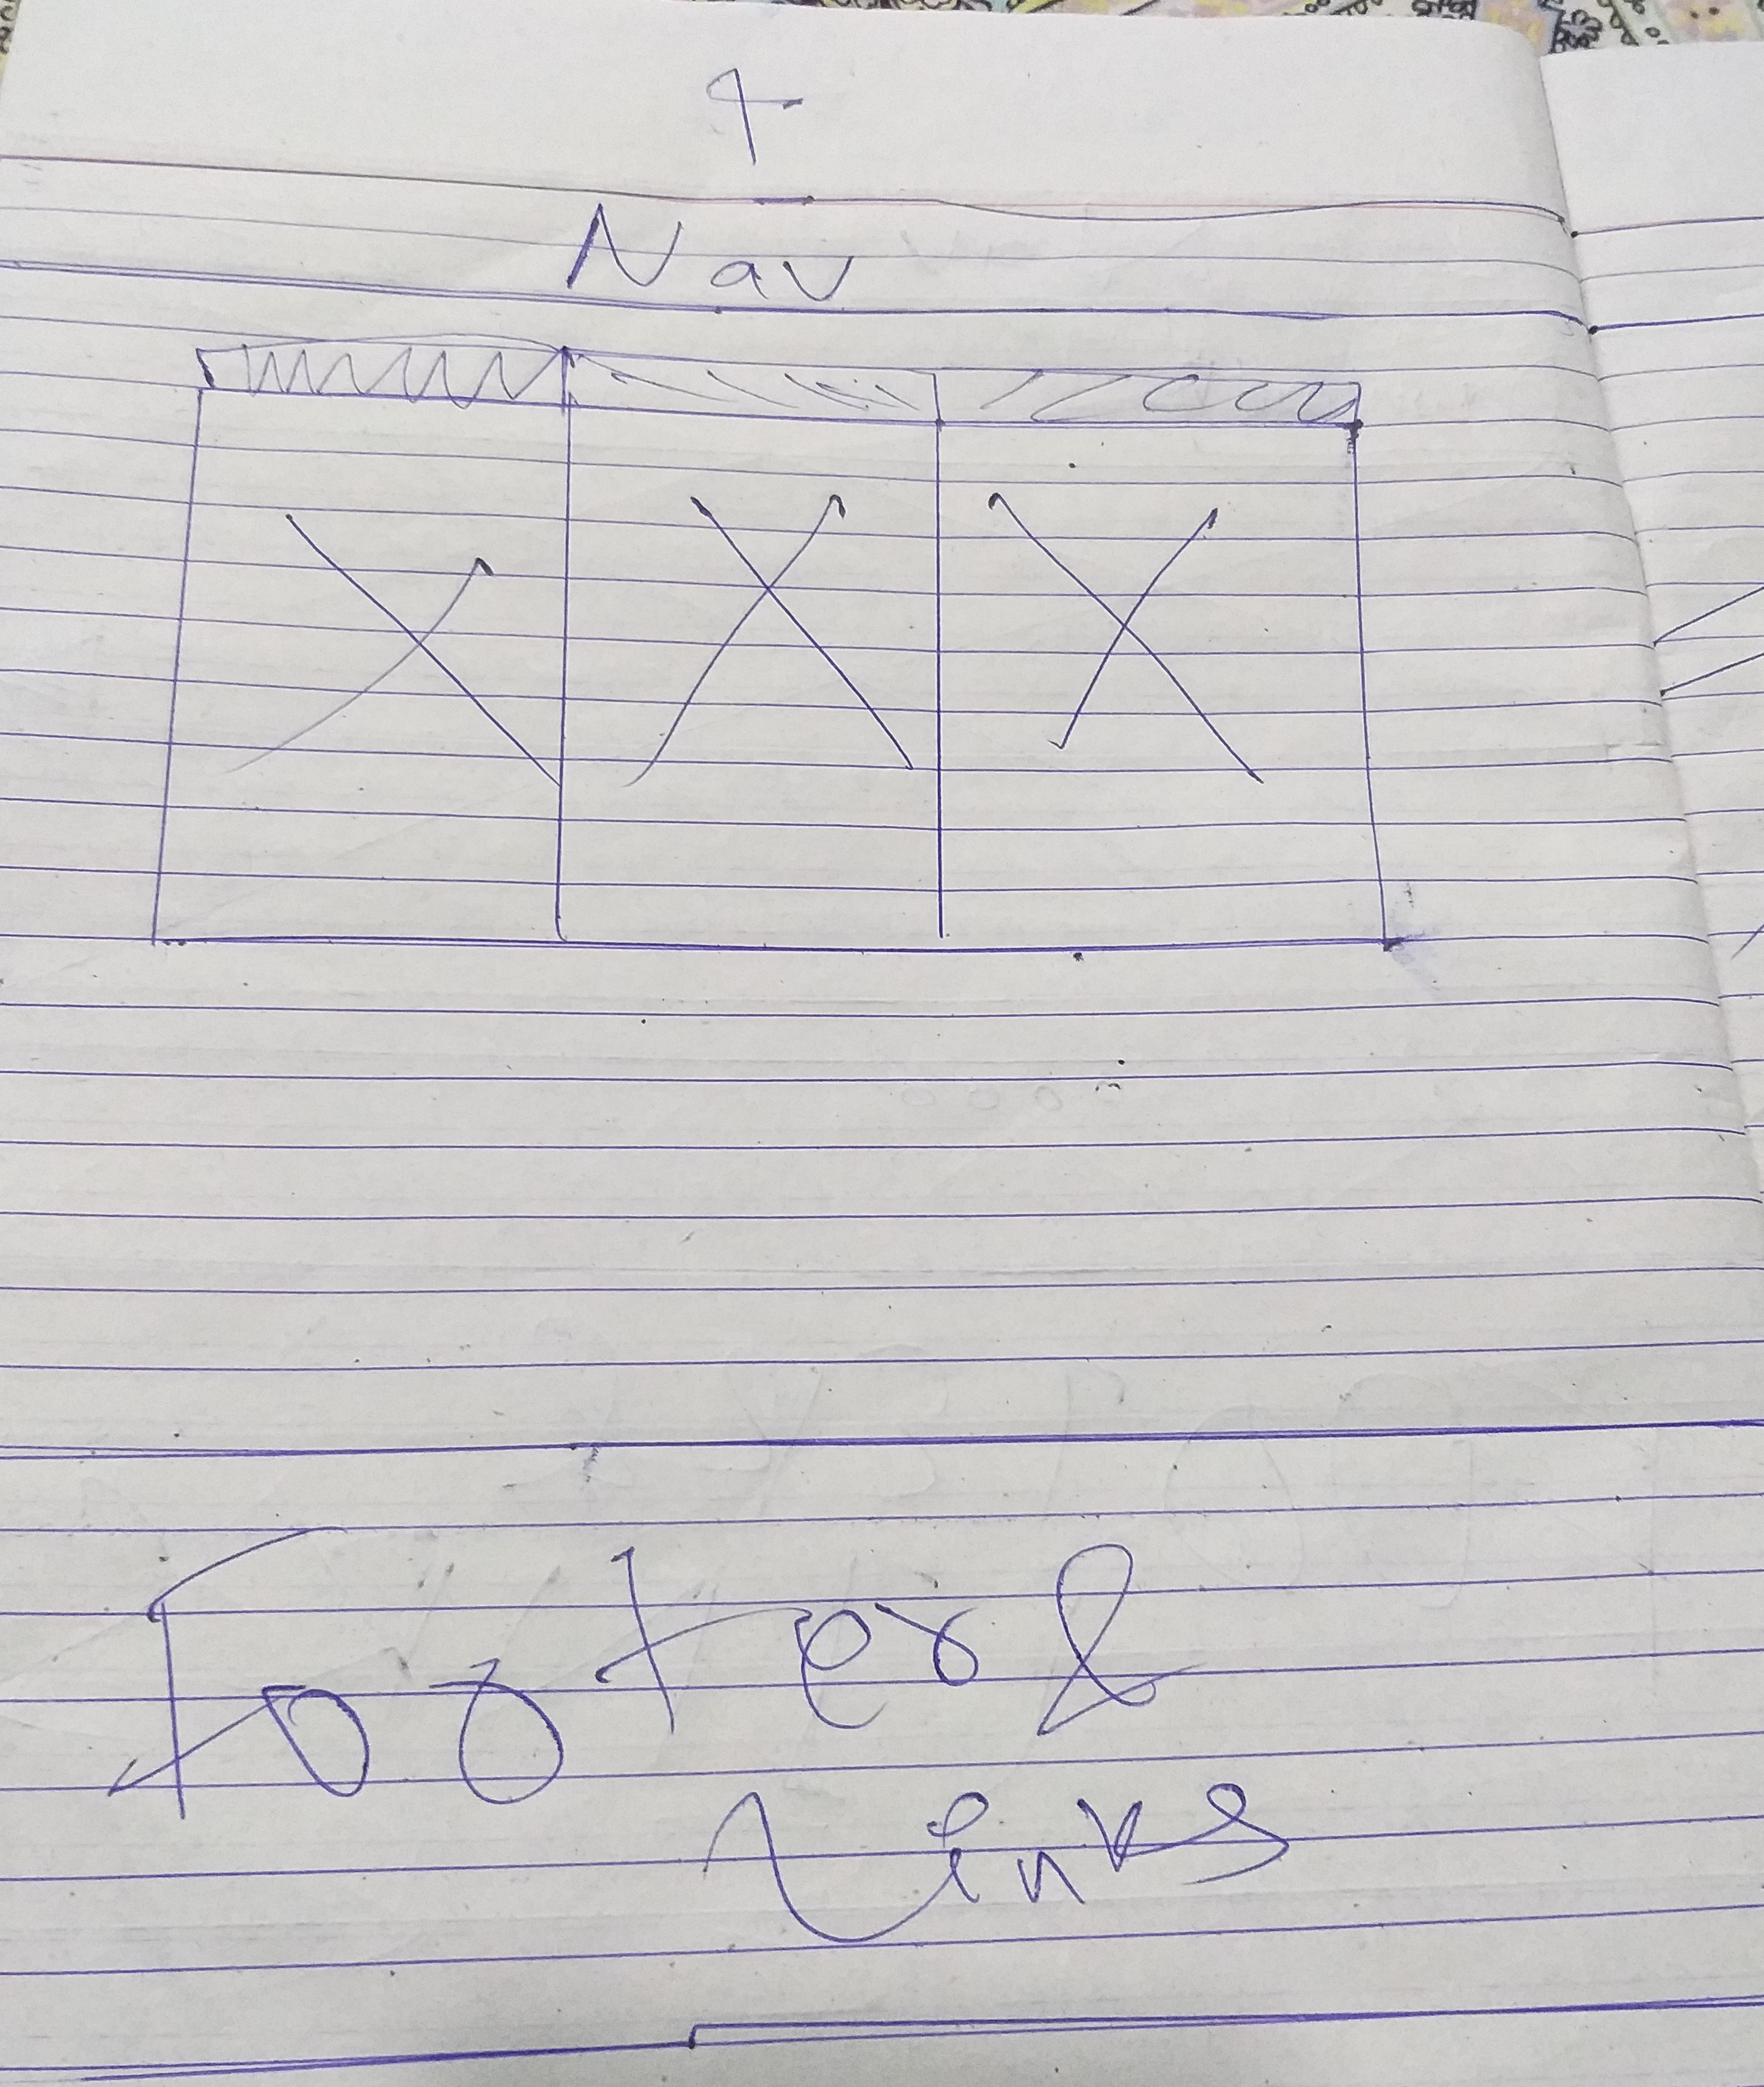 Nav
Footer &
Links